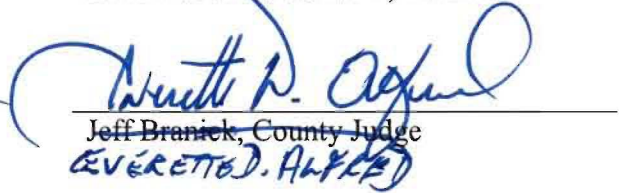 Everette D. Alfred
Jeff Branick, County Judge
EVERETTE D. ALFRED